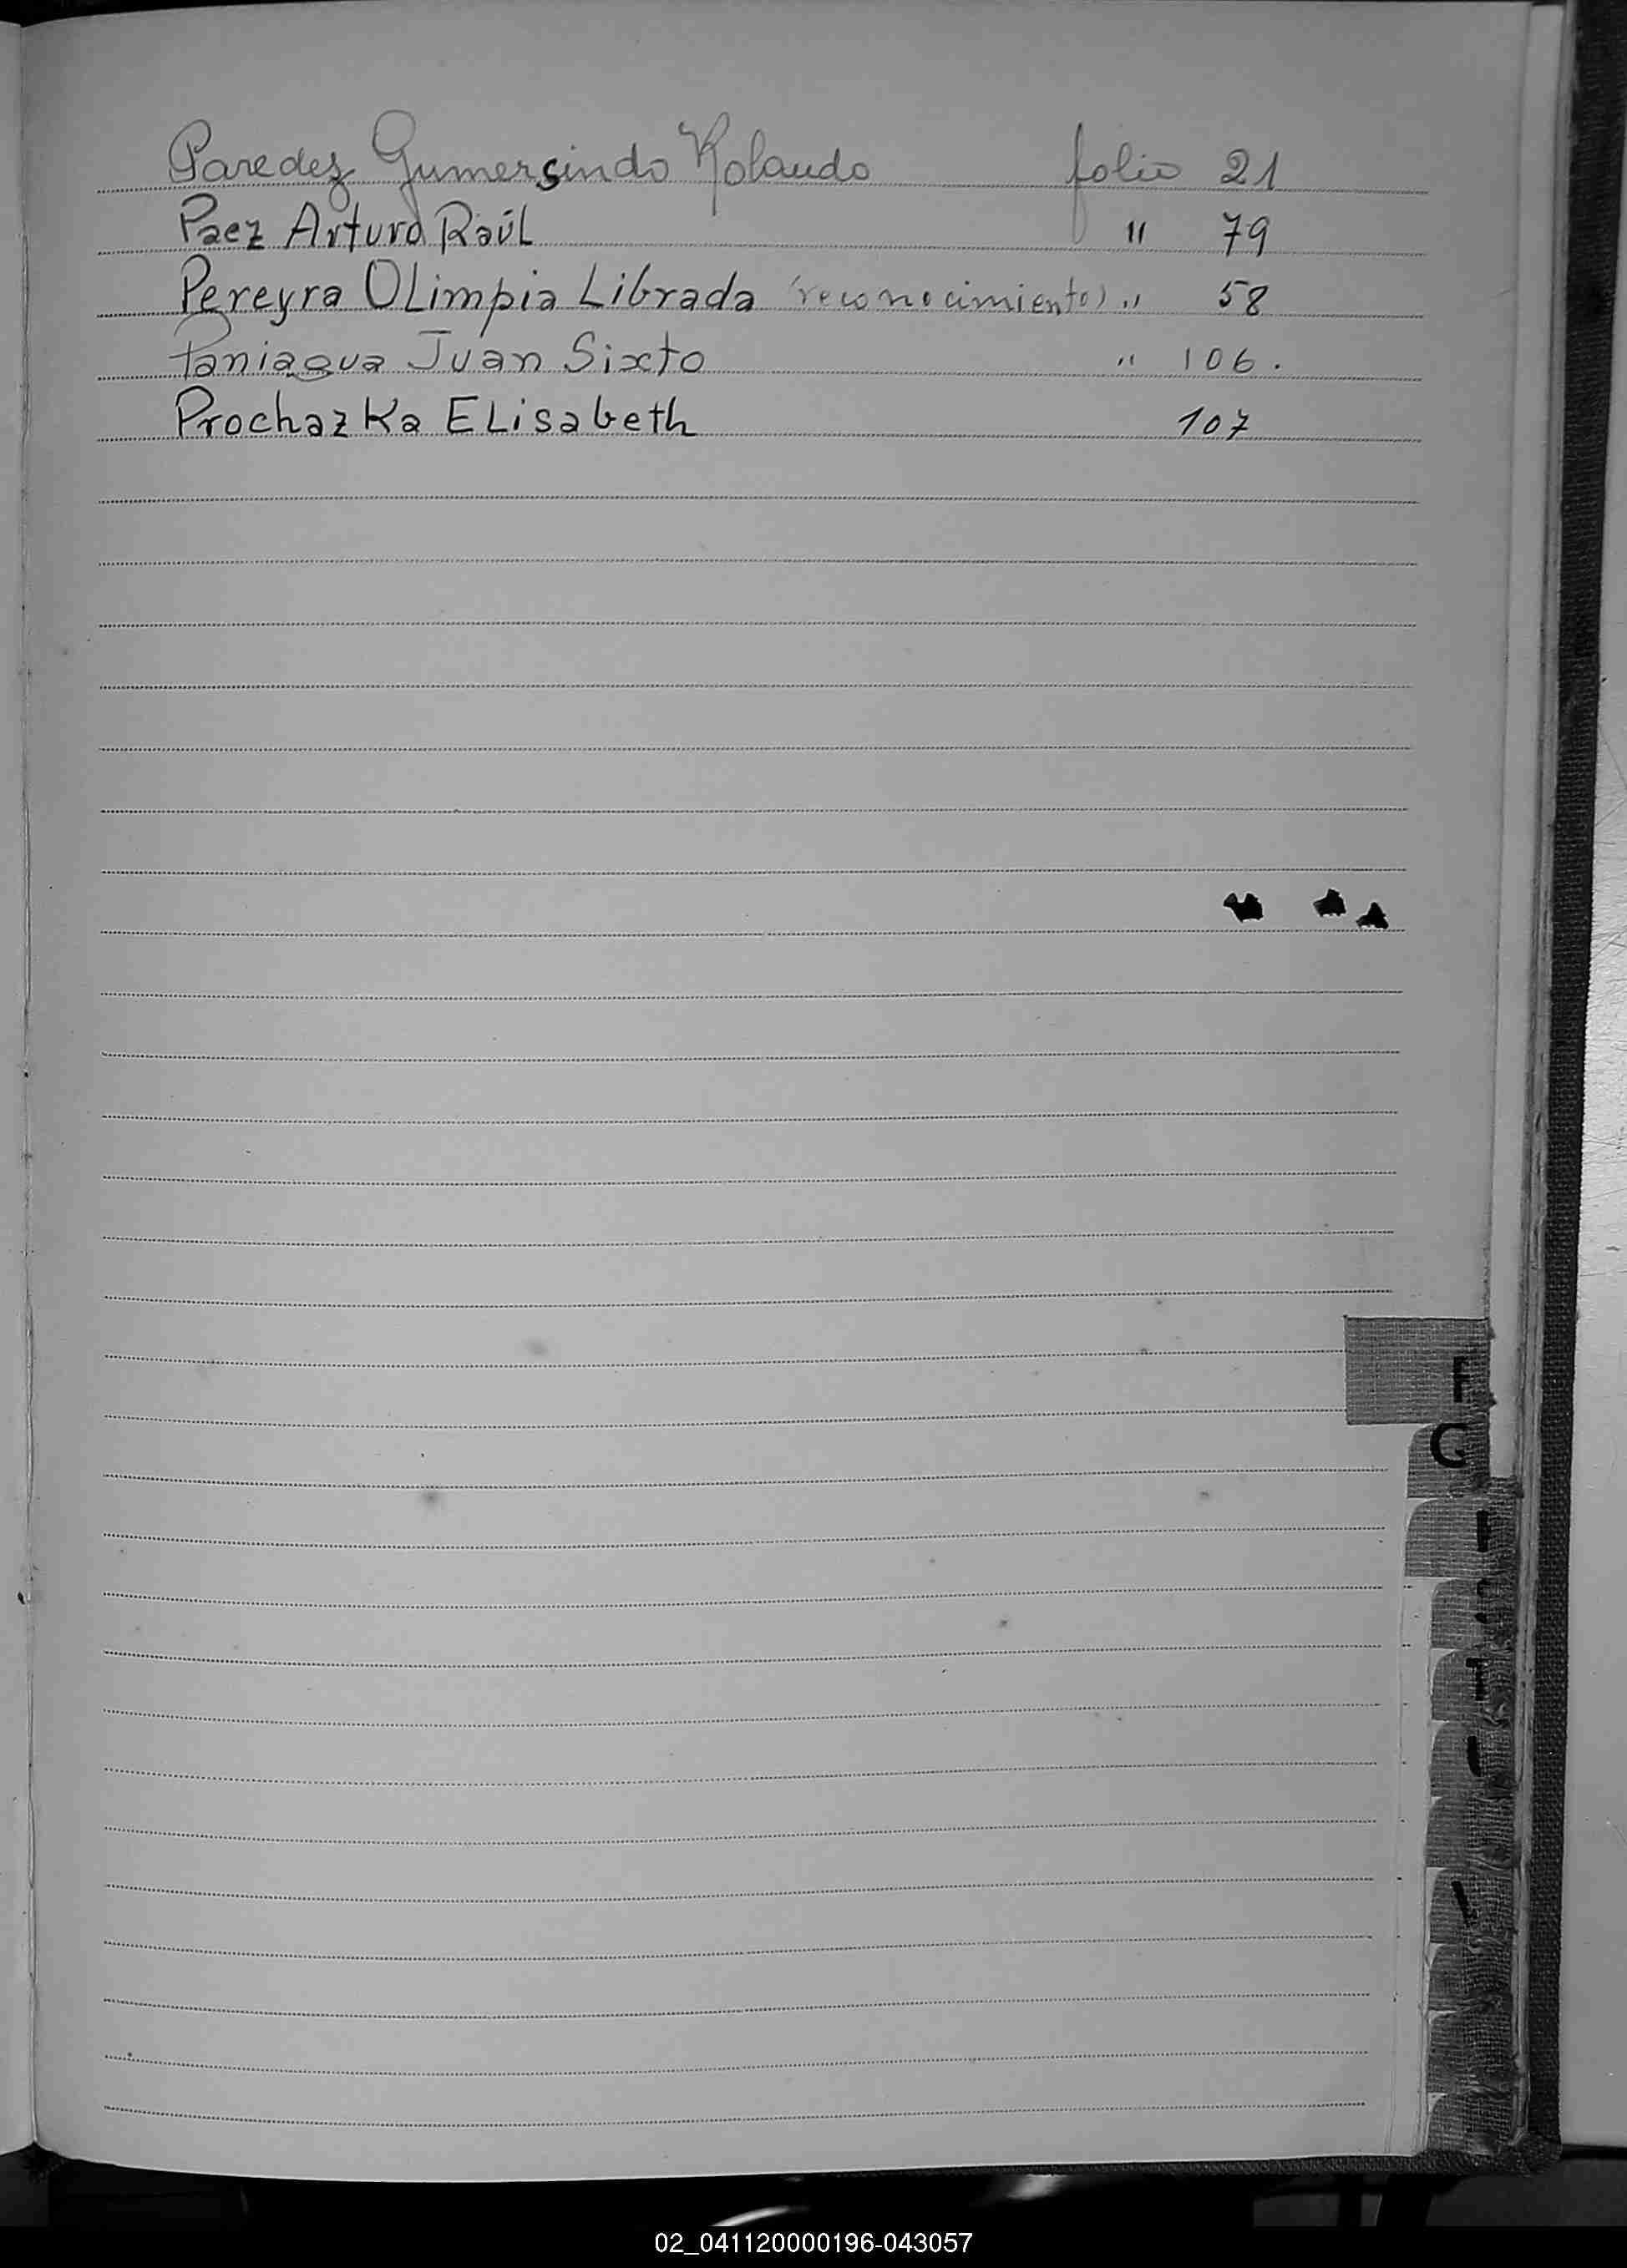 Paredez Gumersindo Rolando folio 21
Paez Arturo Raúl " 79
Pereyra Olimpia Librada (reconocimiento) " 58
Paniagua Juan Sixto " 106.
Prochazka Elisabeth 107
G
02_041120000196-043057